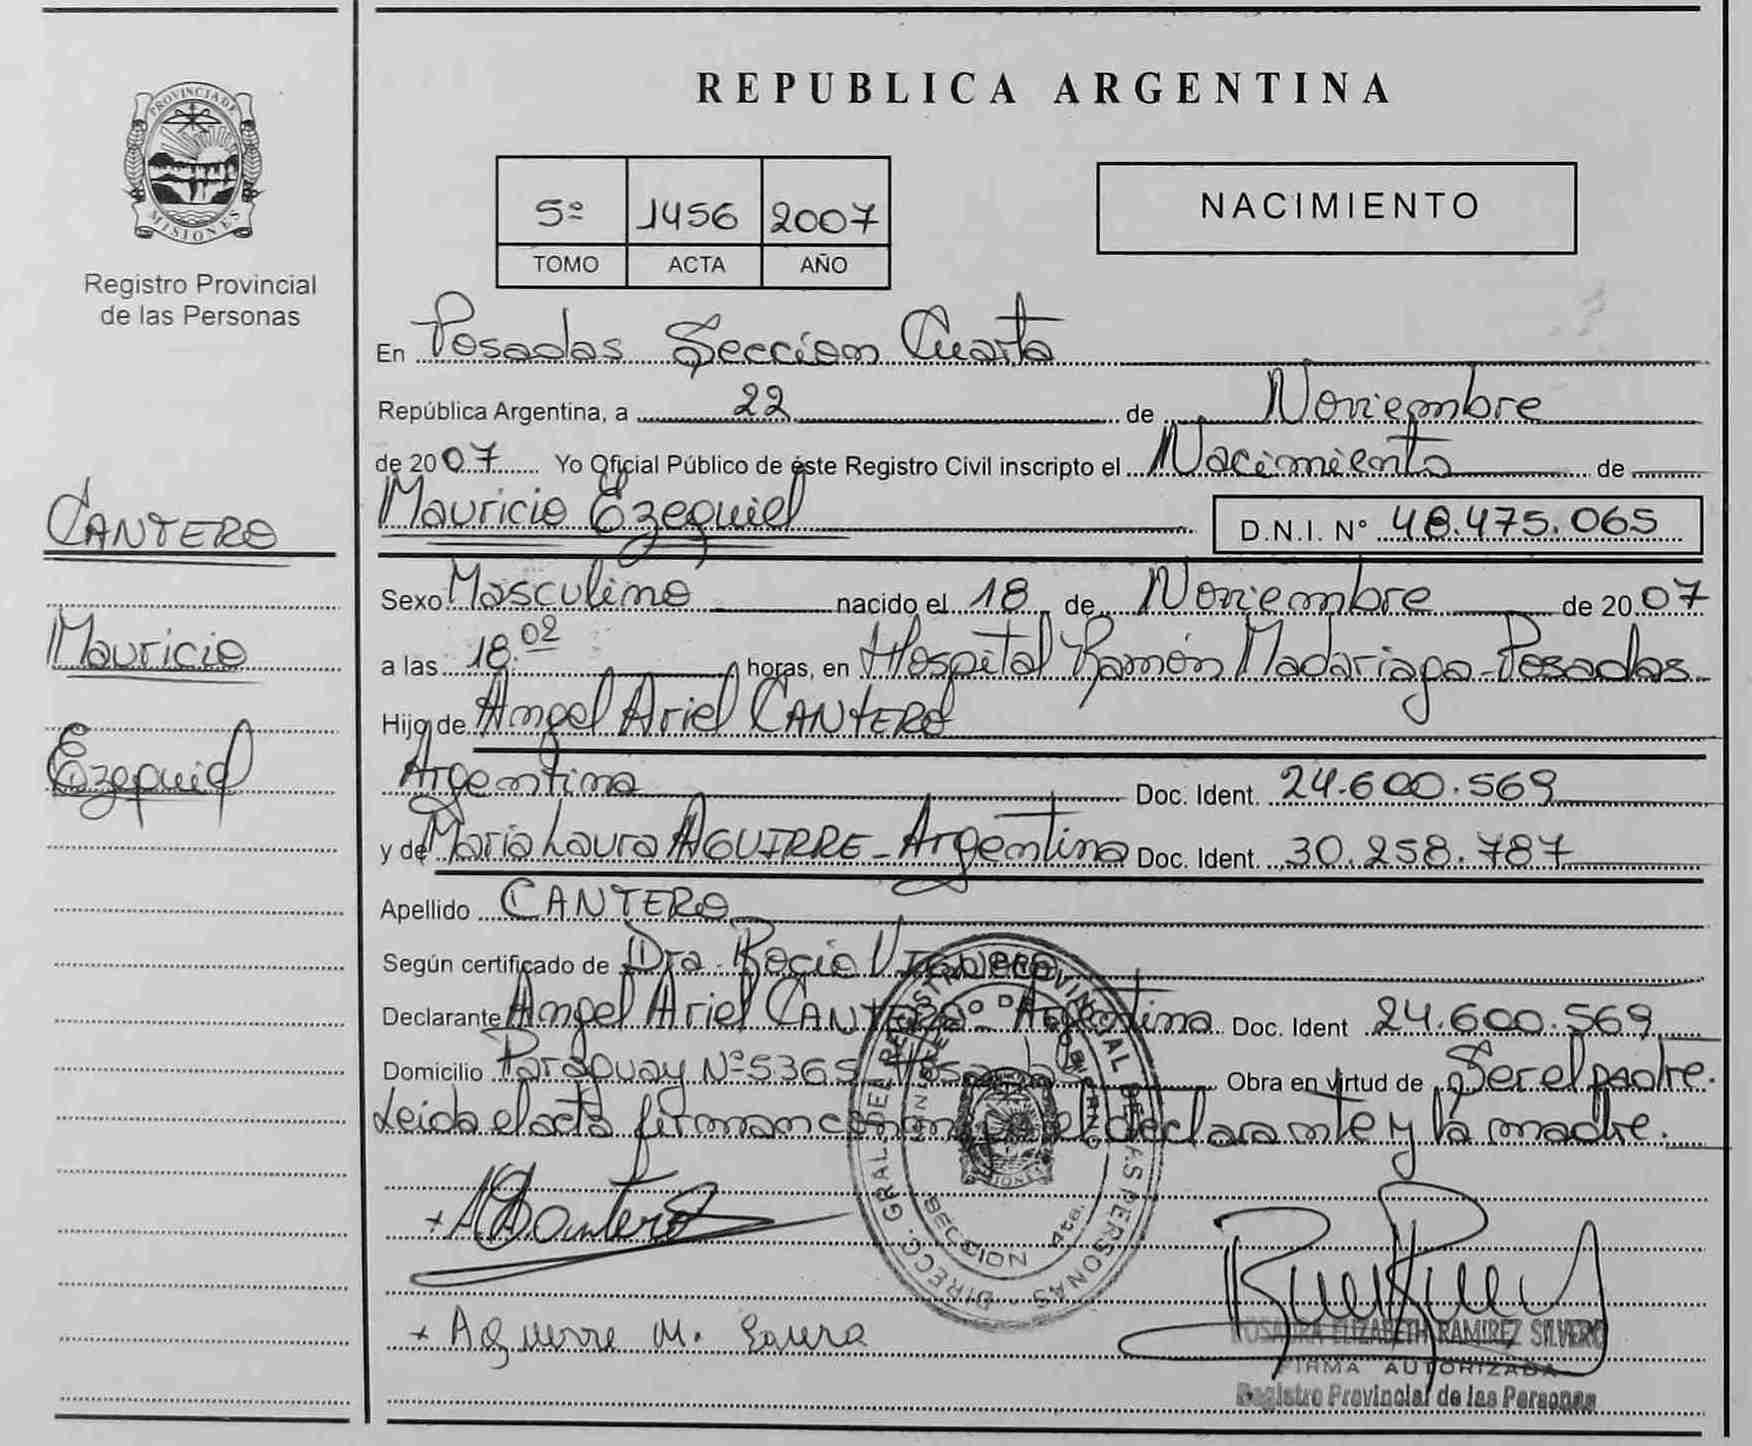 PROVINCIA DE
MISIONES
Registro Provincial
de las Personas
CANTERO
Mauricio
Ezequiel
REPUBLICA ARGENTINA
5º 1456 2007
TOMO ACTA AÑO
NACIMIENTO
En Posadas Seccion Cuarta
República Argentina, a 22 de Noviembre
de 2007 Yo Oficial Público de éste Registro Civil inscripto el Nacimiento de
Mauricio Ezequiel D.N.I. Nº 48.475.065
Sexo Masculino nacido el 18 de Noviembre de 2007
a las 18.02 horas, en Hospital Ramón Madariaga - Posadas
Hijo de Angel Ariel CANTERO
Argentina Doc. Ident. 24.600.569
y de Maria Laura AGUIRRE - Argentina Doc. Ident. 30.258.787
Apellido CANTERO
Según certificado de Dra. Rocio
Declarante Angel Ariel CANTERO - Argentina Doc. Ident 24.600.569
Domicilio Paraguay Nº 5365 - Posadas Obra en virtud de Ser el padre.
Leida el acta firman conmigo el declarante y la madre.
DIRECC. GRAL. DEL REGISTRO PROVINCIAL DE LAS PERSONAS
SECCION 4ta.
MISIONES
+ A Cantero
+ Aguirre M. Laura
ROSAURA ELIZABETH RAMIREZ SILVERO
FIRMA AUTORIZADA
Registro Provincial de las Personas